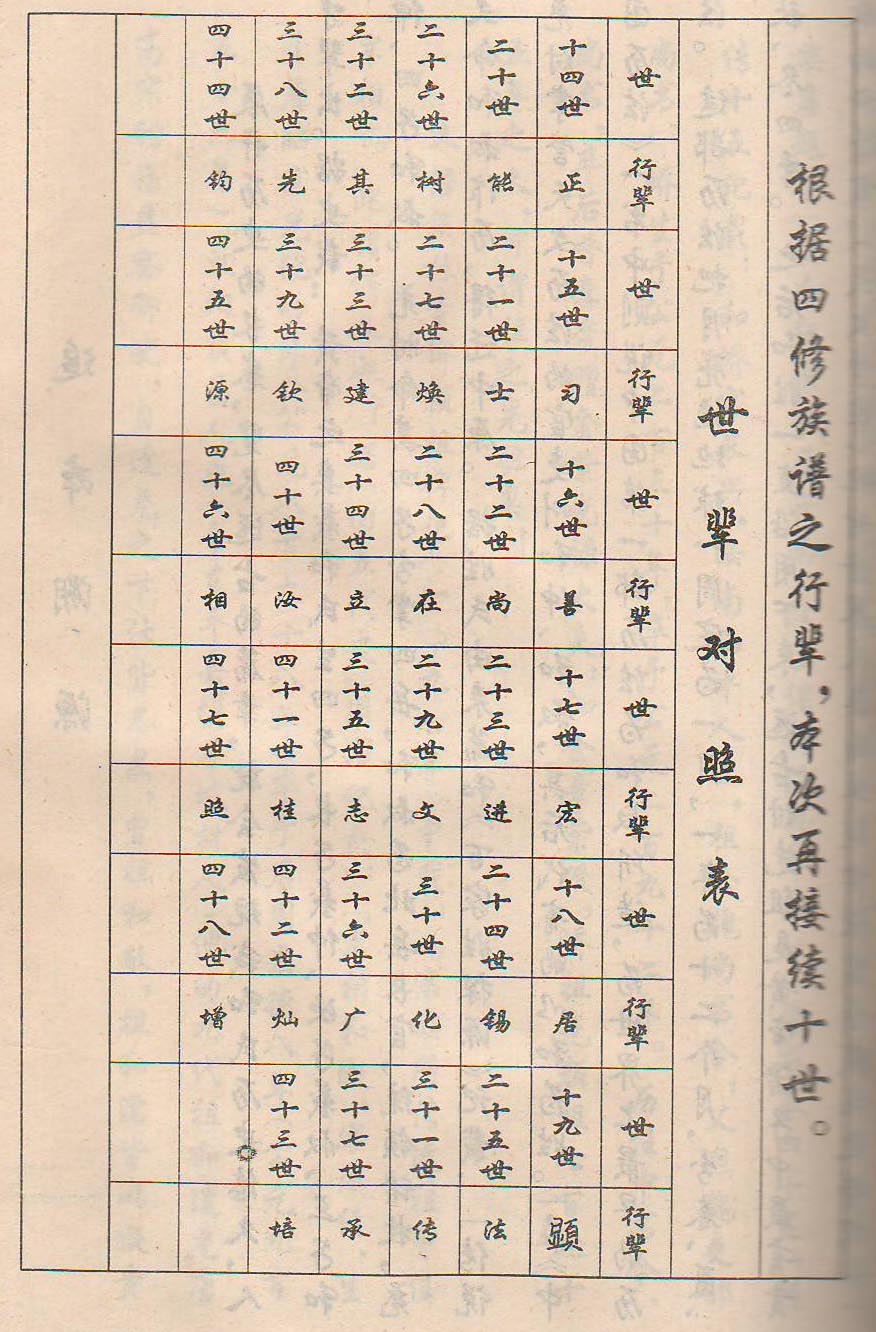 根据四修族谱之行辈，本次再接续十世。
世辈对照表
世 行辈 世 行辈 世 行辈 世 行辈 世 行辈 世 行辈
十四世 正 十五世 习 十六世 善 十七世 宏 十八世 居 十九世 顕
二十世 能 二十一世 士 二十二世 尚 二十三世 进 二十四世 锡 二十五世 法
二十六世 树 二十七世 焕 二十八世 在 二十九世 文 三十世 化 三十一世 传
三十二世 其 三十三世 建 三十四世 立 三十五世 志 三十六世 广 三十七世 承
三十八世 先 三十九世 钦 四十世 汝 四十一世 桂 四十二世 灿 四十三世 培
四十四世 钧 四十五世 源 四十六世 相 四十七世 照 四十八世 增